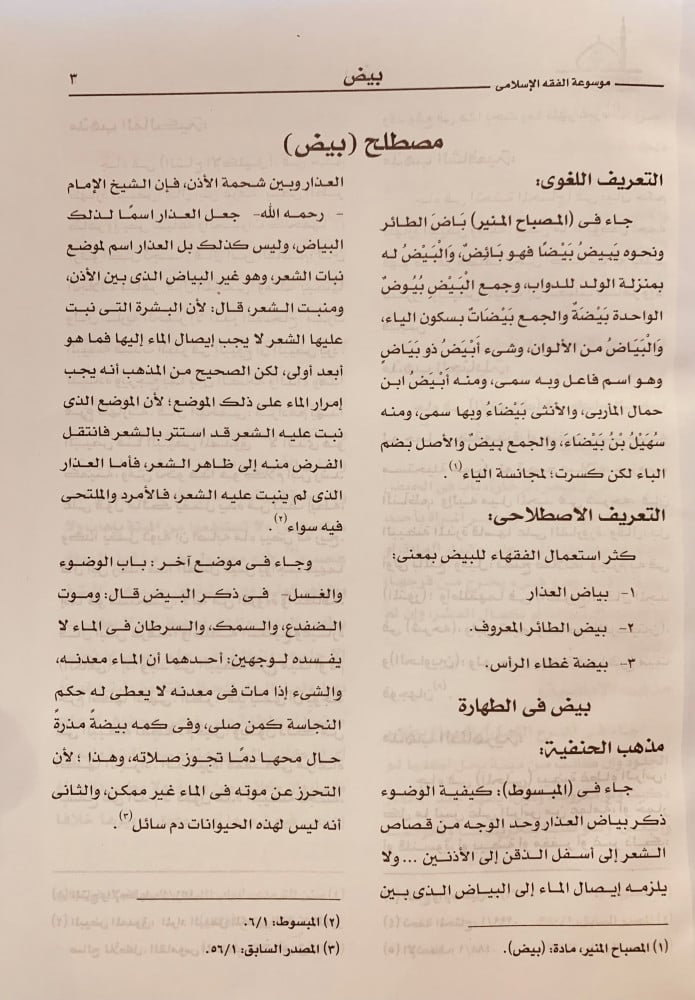 موسوعة الفقه الإسلامى
بيض
٣
مصطلح (بيض)
التعريف اللغوى:
جاء فى (المصباح المنير) بَاضَ الطائر
ونحوه يَبِيضُ بَيْضًا فهو بَائِضٌ، وَالْبَيْضُ له
بمنزلة الولد للدواب، وجمع الْبَيْضِ بُيُوضٌ
الواحدة بَيْضَةٌ والجمع بَيْضَاتٌ بسكون الياء،
وَالْبَيَاضُ من الألوان، وشىء أَبْيَضُ ذو بَيَاضٍ
وهو اسم فاعل وبه سمى، ومنه أَبْيَضُ ابن
حمال المأربى، والأنثى بَيْضَاءُ وبها سمى، ومنه
سُهَيْلُ بْنُ بَيْضَاءَ، والجمع بِيضٌ والأصل بضم
الباء لكن كسرت؛ لمجانسة الياء(١).
التعريف الاصطلاحى:
كثر استعمال الفقهاء للبيض بمعنى:
١- بياض العذار
٢- بيض الطائر المعروف.
٣- بيضة غطاء الرأس.
بيض فى الطهارة
مذهب الحنفية:
جاء فى (المبسوط): كيفية الوضوء
ذكر بياض العذار وحد الوجه من قصاص
الشعر إلى أسفل الذقن إلى الأذنين ...ولا
يلزمه إيصال الماء إلى البياض الذى بين
(١) المصباح المنير، مادة: (بيض).
العذار وبين شحمة الأذن، فإن الشيخ الإمام
- رحمه الله- جعل العذار اسمًا لذلك
البياض، وليس كذلك بل العذار اسم لموضع
نبات الشعر، وهو غير البياض الذى بين الأذن،
ومنبت الشعر، قال: لأن البشرة التى نبت
عليها الشعر لا يجب إيصال الماء إليها فما هو
أبعد أولى، لكن الصحيح من المذهب أنه يجب
إمرار الماء على ذلك الموضع؛ لأن الموضع الذى
نبت عليه الشعر قد استتر بالشعر فانتقل
الفرض منه إلى ظاهر الشعر، فأما العذار
الذى لم ينبت عليه الشعر، فالأمرد والملتحى
فيه سواء(٢).
وجاء فى موضع آخر : باب الوضوء
والغسل- فى ذكر البيض قال: وموت
الضفدع، والسمك، والسرطان فى الماء لا
يفسده لوجهين: أحدهما أن الماء معدنه،
والشىء إذا مات فى معدنه لا يعطى له حكم
النجاسة كمن صلى، وفى كمه بيضةً مذرةً
حال محها دمًا تجوز صلاته، وهذا ؛ لأن
التحرز عن موته فى الماء غير ممكن، والثانى
أنه ليس لهذه الحيوانات دم سائل(٣).
(٢) المبسوط: ٦/١.
(٣) المصدر السابق: ٥٦/١.